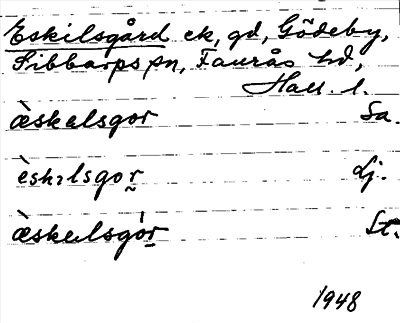 Eskilsgård ek, gd, Gödeby,
Sibbarps sn, Faurås hd,
Hall. l.
æ̀skəlsgor Sa.
ès kɩlsgor̰ Lj.
æ̀skəlsgór̰ St.
1948